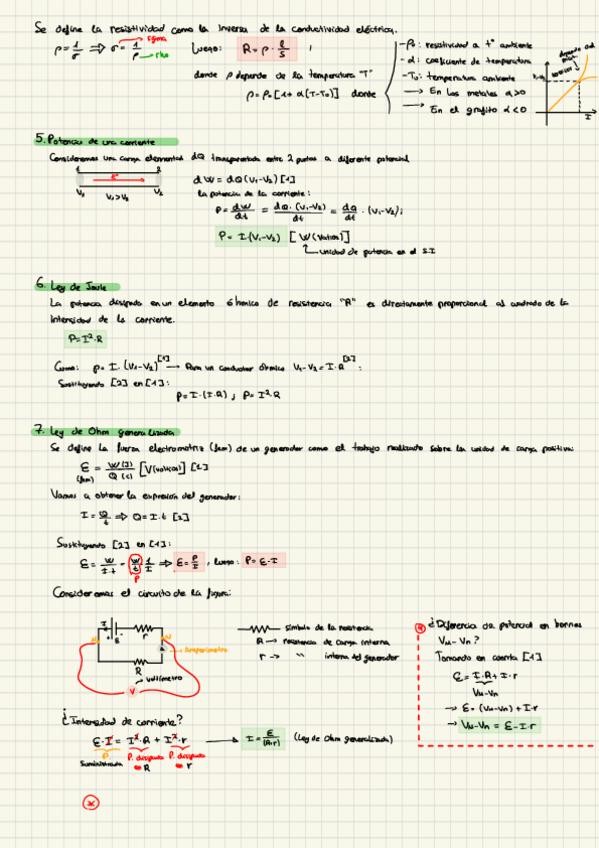 Se define la resistividad como la inversa de la conductividad eléctrica.
ρ = 1/σ ⇒ σ = 1/ρ
sigma
rho
Luego: R = ρ · l/S ;
donde ρ depende de la temperatura "T"
ρ = ρ₀ [1 + α(T-T₀)] donde
- ρ₀: resistividad a tª ambiente
- α: coeficiente de temperatura
- T₀: temperatura ambiente
→ En los metales α>0
→ En el grafito α<0
I
5. Potencia de una corriente
Consideremos una carga elemental dQ transportada entre 2 puntos a diferente potencial
1 2
V₁ V₁>V₂ V₂
dW = dQ(V₁-V₂) [1]
la potencia de la corriente:
P = dW/dt = dQ·(V₁-V₂)/dt = dQ/dt · (V₁-V₂);
P = I·(V₁-V₂) [W(Vatios)]
unidad de potencia en el S.I
6. Ley de Joule
La potencia disipada en un elemento óhmico de resistencia "R" es directamente proporcional al cuadrado de la
intensidad de la corriente.
P = I²·R
Como: P = I·(V₁-V₂) [1] → Para un conductor óhmico V₁-V₂ = I·R [2] ;
Sustituyendo [2] en [1]:
P = I·(I·R) ; P = I²·R
7. Ley de Ohm generalizada
Se define la fuerza electromotriz (fem) de un generador como el trabajo realizado sobre la unidad de carga positiva:
ε = W(J)/Q(C) [V(voltios)] [1]
(fem)
Vamos a obtener la expresión del generador:
I = Q/t ⇒ Q = I·t [2]
Sustituyendo [2] en [1]:
ε = W/I·t = W/t 1/I ⇒ ε = P/I , luego: P = ε·I
P
Consideremos el circuito de la figura:
I
ε r
M N
A
Amperímetro
R
voltímetro
V
símbolo de la resistencia
R → resistencia de carga interna
r → " interna del generador
¿Intensidad de corriente?
ε·I = I²·R + I²·r → I = ε/(R+r) (Ley de Ohm generalizada)
P. Suministrada
P. disipada en R
P. disipada en r
*
* ¿Diferencia de potencial en bornes
V_M - V_N ?
Tomando en cuenta [1]
ε = I·R + I·r
V_M-V_N
→ ε = (V_M-V_N) + I·r
→ V_M-V_N = ε - I·r